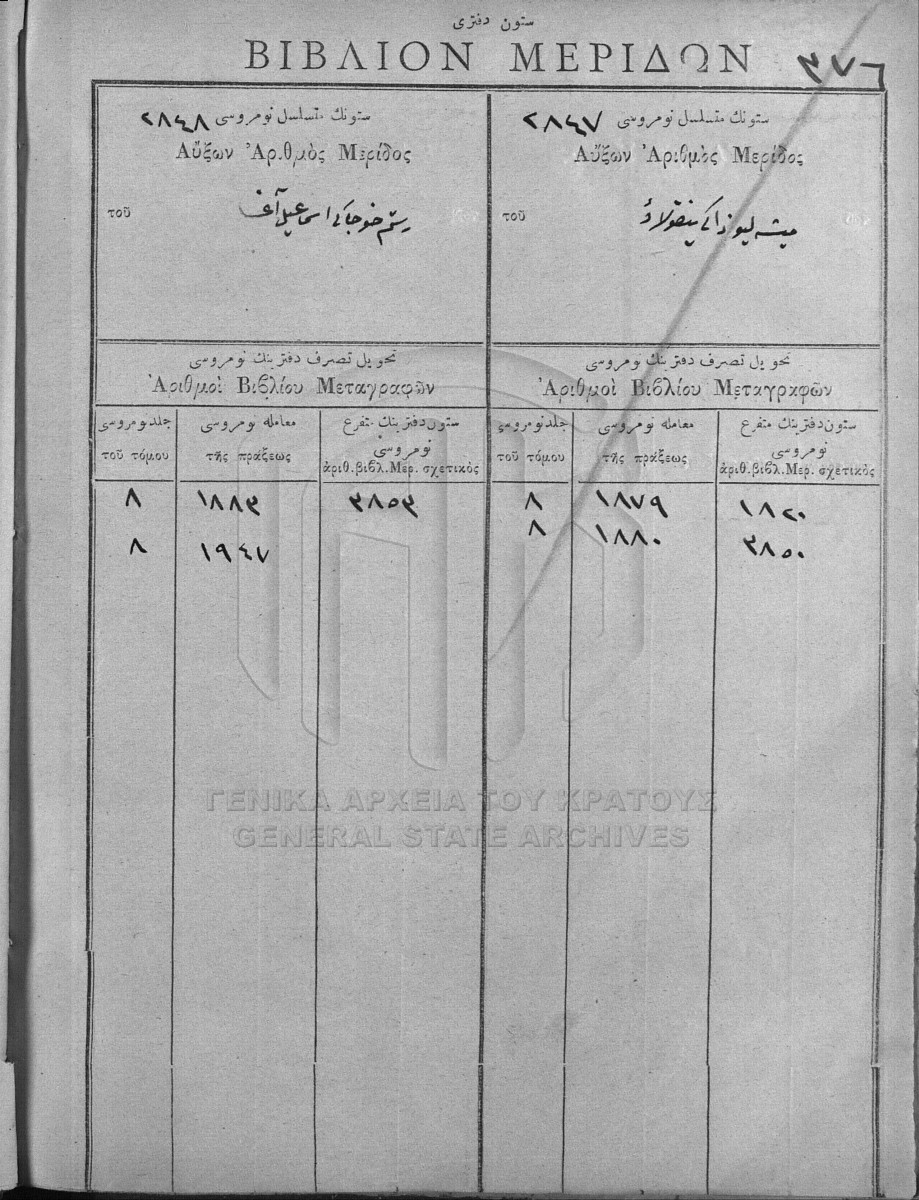 ستون دفتری
ΒΙΒΛΙΟΝ ΜΕΡΙΔΩΝ
٣٧٦
ستونك متسلسل نومروسی ٢٨٤٧
Αὔξων Ἀριθμὸς Μερίδος
τοῦ
ستونك متسلسل نومروسی ٢٨٤٨
Αὔξων Ἀριθμὸς Μερίδος
τοῦ
رستم خوجاكی اسماعیل آغا
تحویل تصرف دفترینك نومروسی
Ἀριθμοὶ Βιβλίου Μεταγραφῶν
ستون دفترینك متفرع نومروسی
ἀριθ. βιβλ. Μερ. σχετικὸς
معامله نومروسی
τῆς πράξεως
جلد نومروسی
τοῦ τόμου
١٨٢٠ ١٨٧٩ ٨
٣٨٥٠ ١٨٨٠ ٨
تحویل تصرف دفترینك نومروسی
Ἀριθμοὶ Βιβλίου Μεταγραφῶν
ستون دفترینك متفرع نومروسی
ἀριθ. βιβλ. Μερ. σχετικὸς
معامله نومروسی
τῆς πράξεως
جلد نومروسی
τοῦ τόμου
٣٨٥٣ ١٨٨٣ ٨
١٩٤٧ ٨
ΓΕΝΙΚΑ ΑΡΧΕΙΑ ΤΟΥ ΚΡΑΤΟΥΣ
GENERAL STATE ARCHIVES